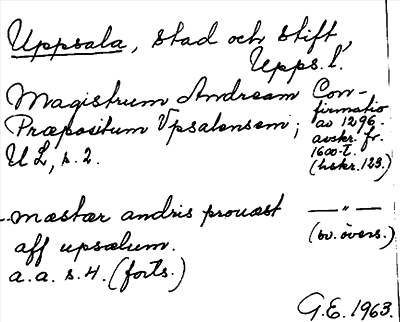 Uppsala, stad och stift,
Upps. l.
Magistrum Andream
Præpositum Vpsalensem;
U L, s. 2.
Con-
firmatio
av 1296.
avskr. fr.
1600-t.
(hskr. 123.)
mæstær andris prouæst
aff upsælum.
a.a. s. 4. (forts.)
— " —
(sv. övers.)
G.E. 1963.